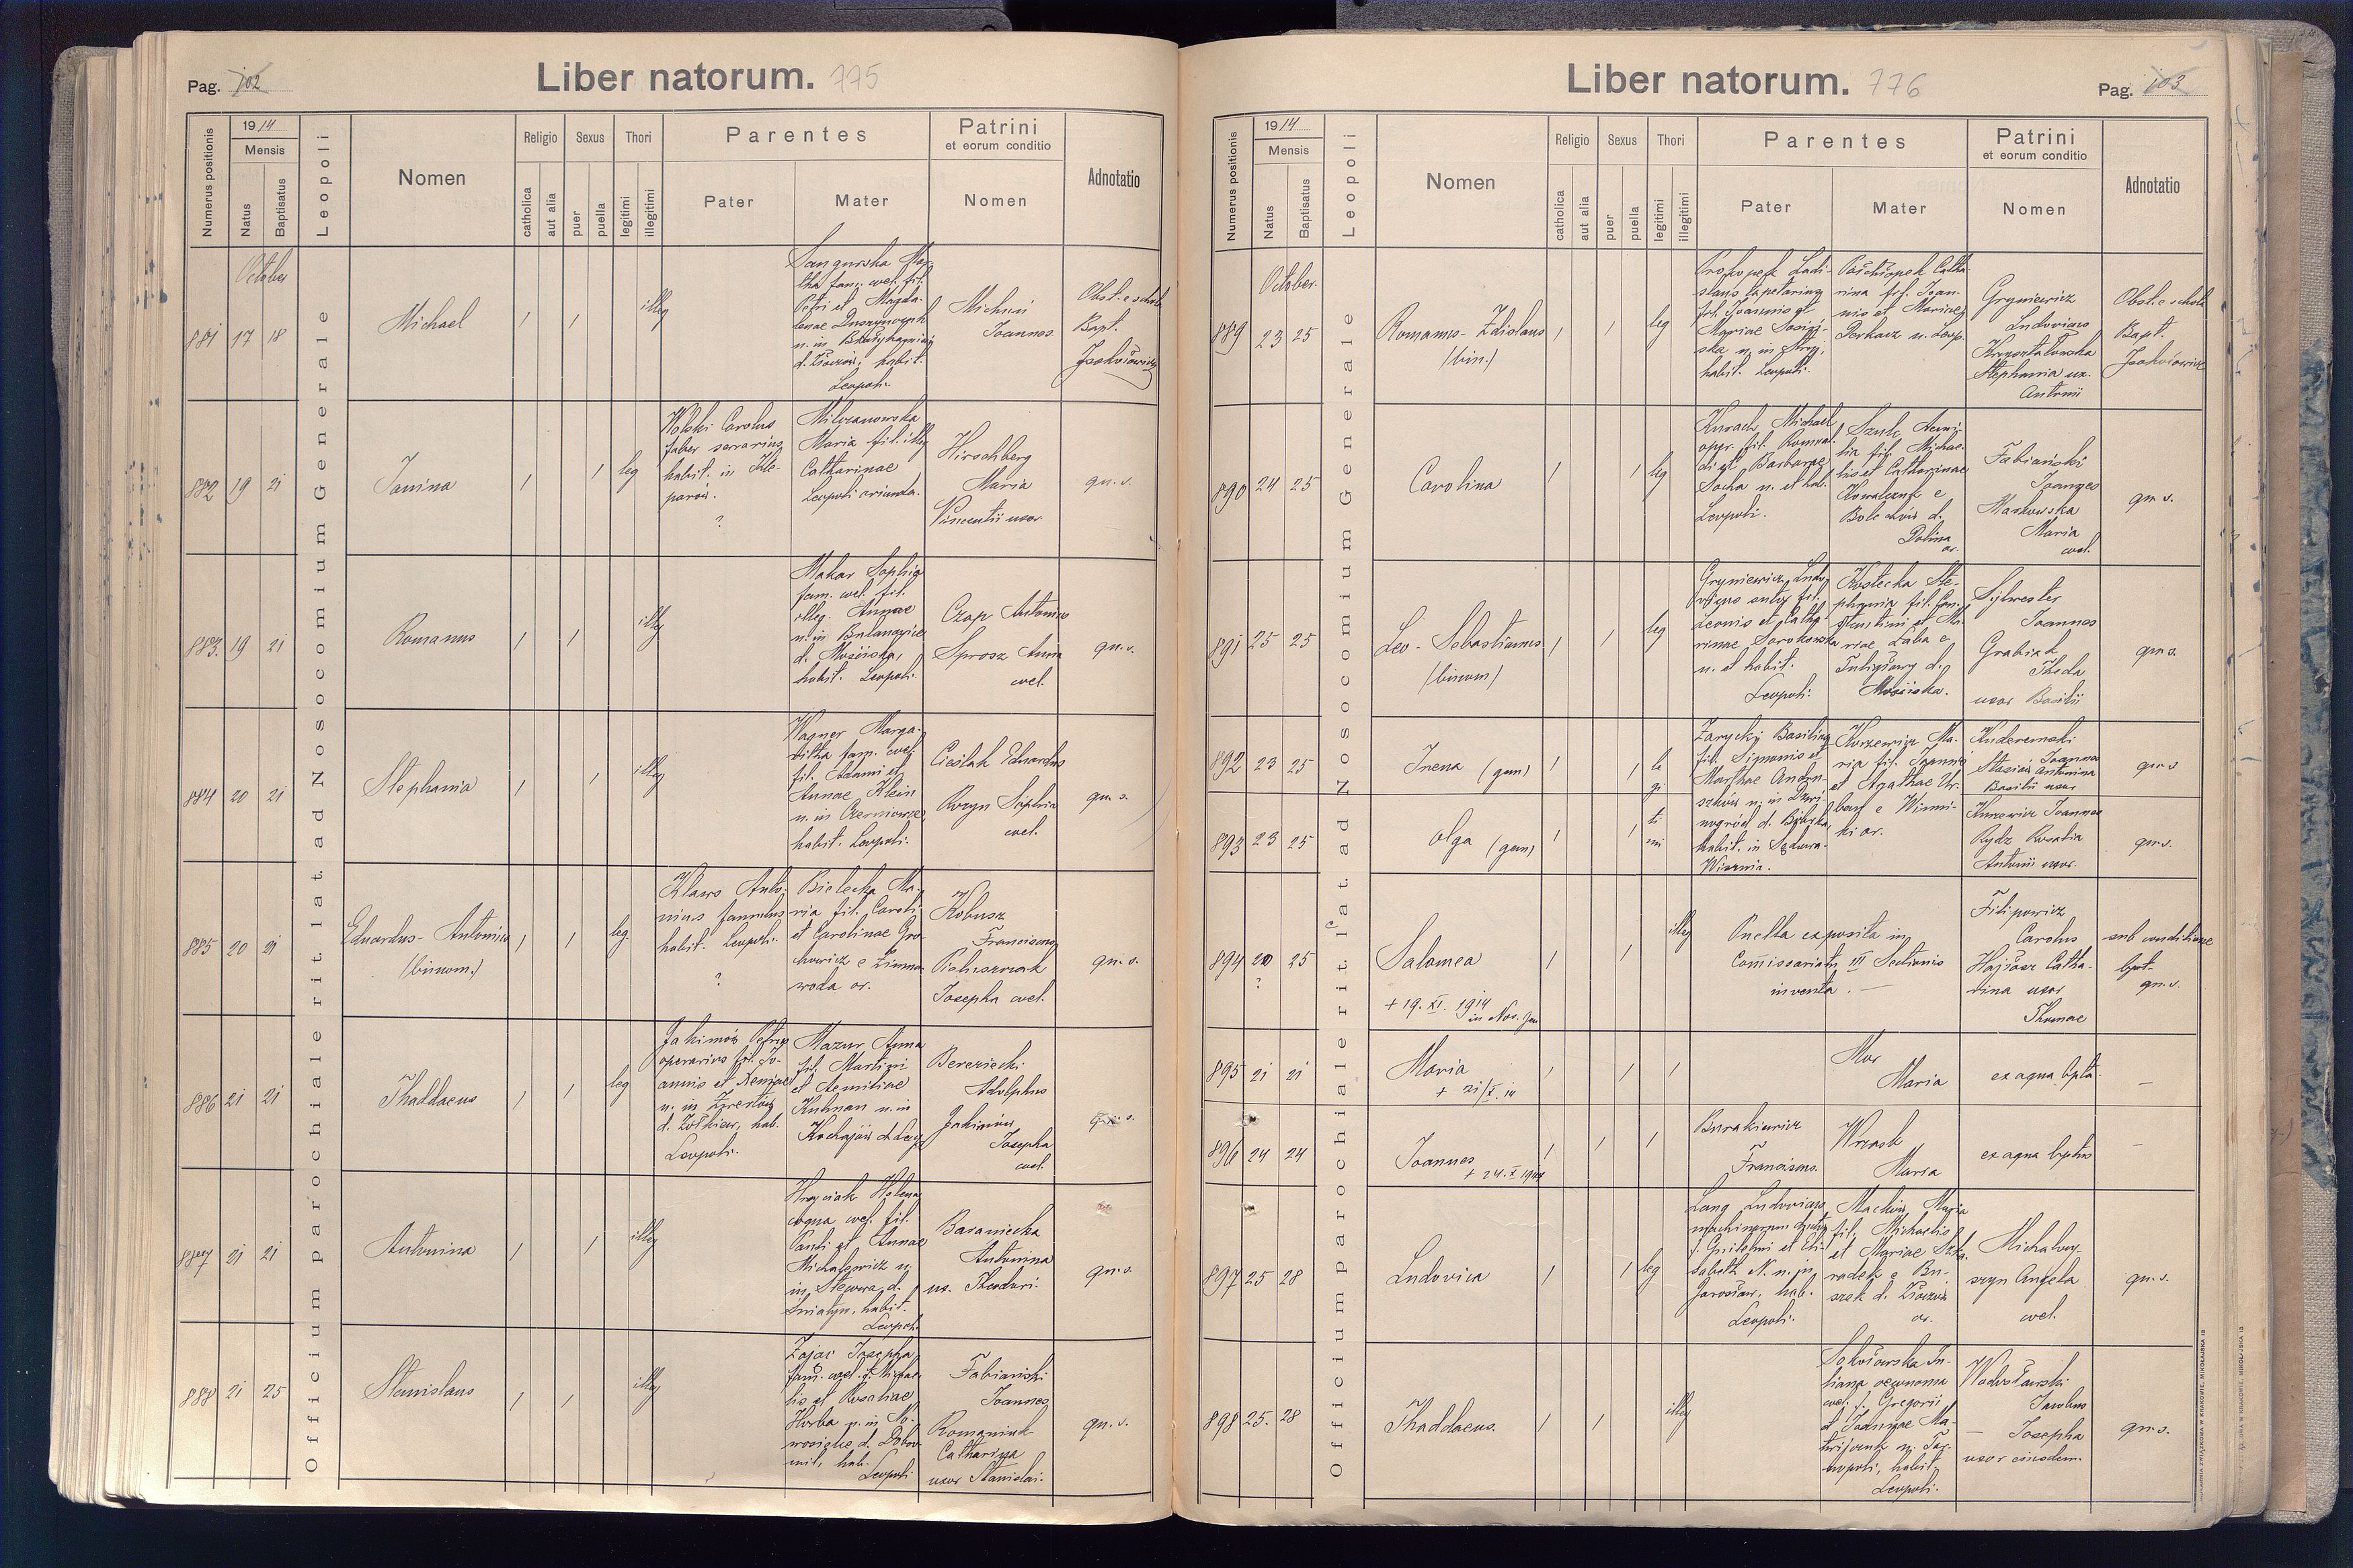 Pag. 102
Liber natorum. 775
Numerus positionis
1914
Mensis
Natus
Baptisatus
Leopoli
Nomen
Religio
catholica
aut alia
Sexus
puer
puella
Thori
legitimi
illegitimi
Parentes
Pater
Mater
Patrini
et eorum conditio
Nomen
Adnotatio
Officium parochiale rit. lat. ad Nosocomium Generale
October
881 17 18
Michael
illeg
tha fam. coel. fil.
Petri et Magda-
lenae
habit.
Leopoli.
Michnii
Joannes
Obst. e schola
Bapt.
882 19 21
Janina
leg
Wolski Carolus
faber serrarius
habit. in Kle-
parów.
?
Milczanowska
Maria fil. illeg
Catharinae
Leopoli oriunda.
Hirschberg
Maria
Vincentii uxor
qu. s.
883. 19 21
Romanus
illeg
Makar Sophia
fam. coel. fil.
illeg. Annae
n. in
d. Mościska,
habit. Leopoli.
Czap Antonius
Sprosz Anna
coel.
qu. s.
884 20 21
Stephania
illeg
Wagner Marga-
ritha fam. coel.
fil. Adami et
Annae Klein
n. in Czerniowce,
habit. Leopoli.
Cieślak Eduardus
Sophia
coel.
qu. s.
885 20 21
Eduardus - Antonius
(binom.)
leg.
Klaws Anto-
nius famulus
habit. Leopoli.
?
Bielecka Ma-
ria fil. Caroli
et Carolinae Gro-
chowicz e Zimna
woda or.
Kobusz
Franciscus
Josepha coel.
qu. s.
886 21 21
Thaddaeus
leg
Jakimów Petrus
operarius fil. Jo-
annis et
n. in
d. Żółkiew, hab.
Leopoli.
Mazur Anna
fil. Martini
et Aemiliae
Kuhnan n. in
Berezicki
Adolphus
Jakimów
Josepha
coel.
qu. s.
887 21 21
Antonina
illeg
Hryciak Helena
coqua coel. fil.
Pauli et Annae
Michalewicz n.
in Stecowa d.
Śniatyn, habit.
Leopoli.
Baraniecka
Antonina
ux. Theodori.
qu. s.
888 21 25
Stanislaus
illeg
Zając Josepha
fam. coel. f. Michae-
lis et Rosaliae
Horba n. in No-
wosielce d. Dobro-
mil, hab.
Leopoli
Fabiański
Joannes
Romaniuk
Catharina
uxor Stanislai.
qu. s.
Liber natorum. 776
Pag. 103
Numerus positionis
1914
Mensis
Natus
Baptisatus
Leopoli
Nomen
Religio
catholica
aut alia
Sexus
puer
puella
Thori
legitimi
illegitimi
Parentes
Pater
Mater
Patrini
et eorum conditio
Nomen
Adnotatio
Officium parochiale rit. lat. ad Nosocomium Generale
October.
889 23 25
Romanus - Zdislaus
(bin.)
leg
Prokopek Ladi-
slaus tapetarius
fil. Joannis et
Mariae
ska n. in Stryj,
habit. Leopoli.
Catha-
rina fil. Joan-
nis et Mariae
n. Leop.
Gryniewicz
Ludovicus
Krysztalowska
Stephania ux.
Antonii
Obst. e schola
Bapt.
890 24 25
Carolina
leg
Kurach Michael
oper. fil. Romual-
di et Barbarae
Socha n. et hab.
Leopoli.
Szulc Aemi-
lia fil. Michae-
lis et Catharinae
Kowalczuk e
Bolechów d.
Dolina
or.
Fabiański
Joannes
Markowska
Maria
coel.
qu. s.
891 25 25
Leo - Sebastianus
(binom)
leg
Gryniewicz Ludo-
vicus
Leonis et Catha-
rinae Sorokowska
n. et habit.
Leopoli.
Kostecka Ste-
phania fil. Con-
stantini et Ma-
riae Łaba e
Tuligłowy d.
Mościska.
Sylwester
Joannes
Grabiak
Thecla
uxor Basilii
qu. s.
892 23 25
Irena (gem)
le
gi
ti
mi
Zarycky Basilius
fil. Simonis et
Marthae Andru-
szków n. in Dzwi-
nogród d. Bóbrka,
habit. in Sądowa-
Wisznia.
Korzewicz Ma-
ria fil. Joannis
et Agathae Ur-
ban e Winni-
ki or.
Kuderewski
Joannes
Stasiów Antonina
Basilii uxor
qu. s
893 23 25
Olga (gem)
Joannes
Rydz Rosalia
Antonii uxor.
qu. s.
894 20 25
?
Salomea
+ 19. XI. 1914
in Nos. Gen
illeg
Puella exposita in
Comissariatu III Sectionis
inventa. —
Filipowicz
Carolus
Hajdasz Catha-
rina uxor
Thomae
sub conditione
bapt.
qu. s.
895 21 21
Maria
+ 21/X. 14
Mac
Maria
ex aqua bpta
—
896 24 24
Joannes
+ 24. X 1914
Burakiewicz
Franciscus.
Wrzask
Maria
ex aqua bptus
—
897 25 28
Ludovica
leg
Lang Ludovicus
f. Guilelmi et Eli-
sabeth N. n. in
Jarosław, hab.
Leopoli.
Macków Maria
fil. Michaelis
et Mariae
radek e Bu-
szek d.
or.
Michalczy-
szyn Angela
coel.
qu. s.
898 25. 28
Thaddaeus.
illeg
Sokołowska Ju-
liana
coel. f. Gregorii
et Ma-
n. Tar-
nopoli, habit.
Leopoli.
Wodosławski
Jacobus
— Josepha
uxor eiusdem.
qu. s.